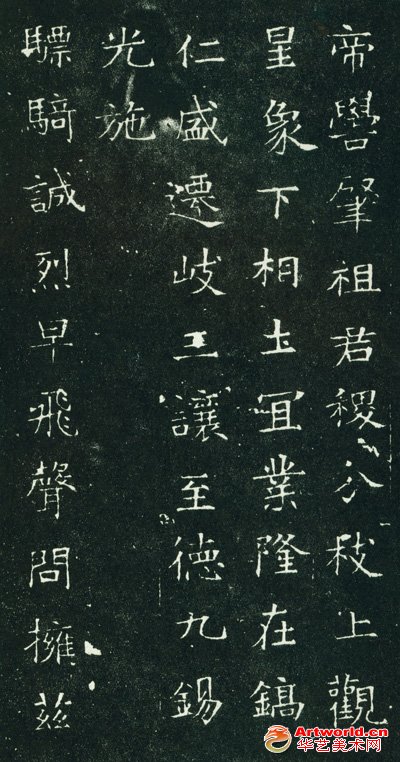 帝嚳肇祖君稷分枝上觀
星象下相土冝業隆在鎬
仁盛遷岐三讓至德九錫
光施
驃騎誠烈早飛聲問擁茲
Artworld.cn
华艺美术网